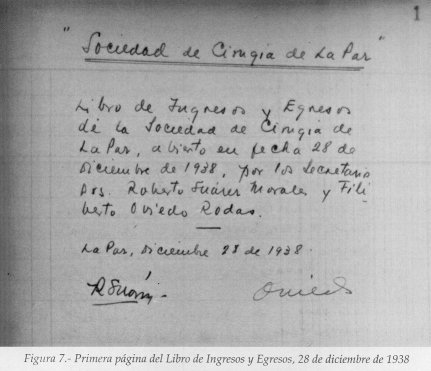 1
" Sociedad de Cirugia de La Paz "
Libro de Ingresos y Egresos
de la Sociedad de Cirugia de
La Paz, abierto en fecha 28 de
diciembre de 1938, por los Secretario
Drs. Roberto Suárez Morales y Fili
berto Oviedo Rodas.
La Paz, Diciembre 28 de 1938.
R Suárez.
Oviedo
Figura 7.- Primera página del Libro de Ingresos y Egresos, 28 de diciembre de 1938